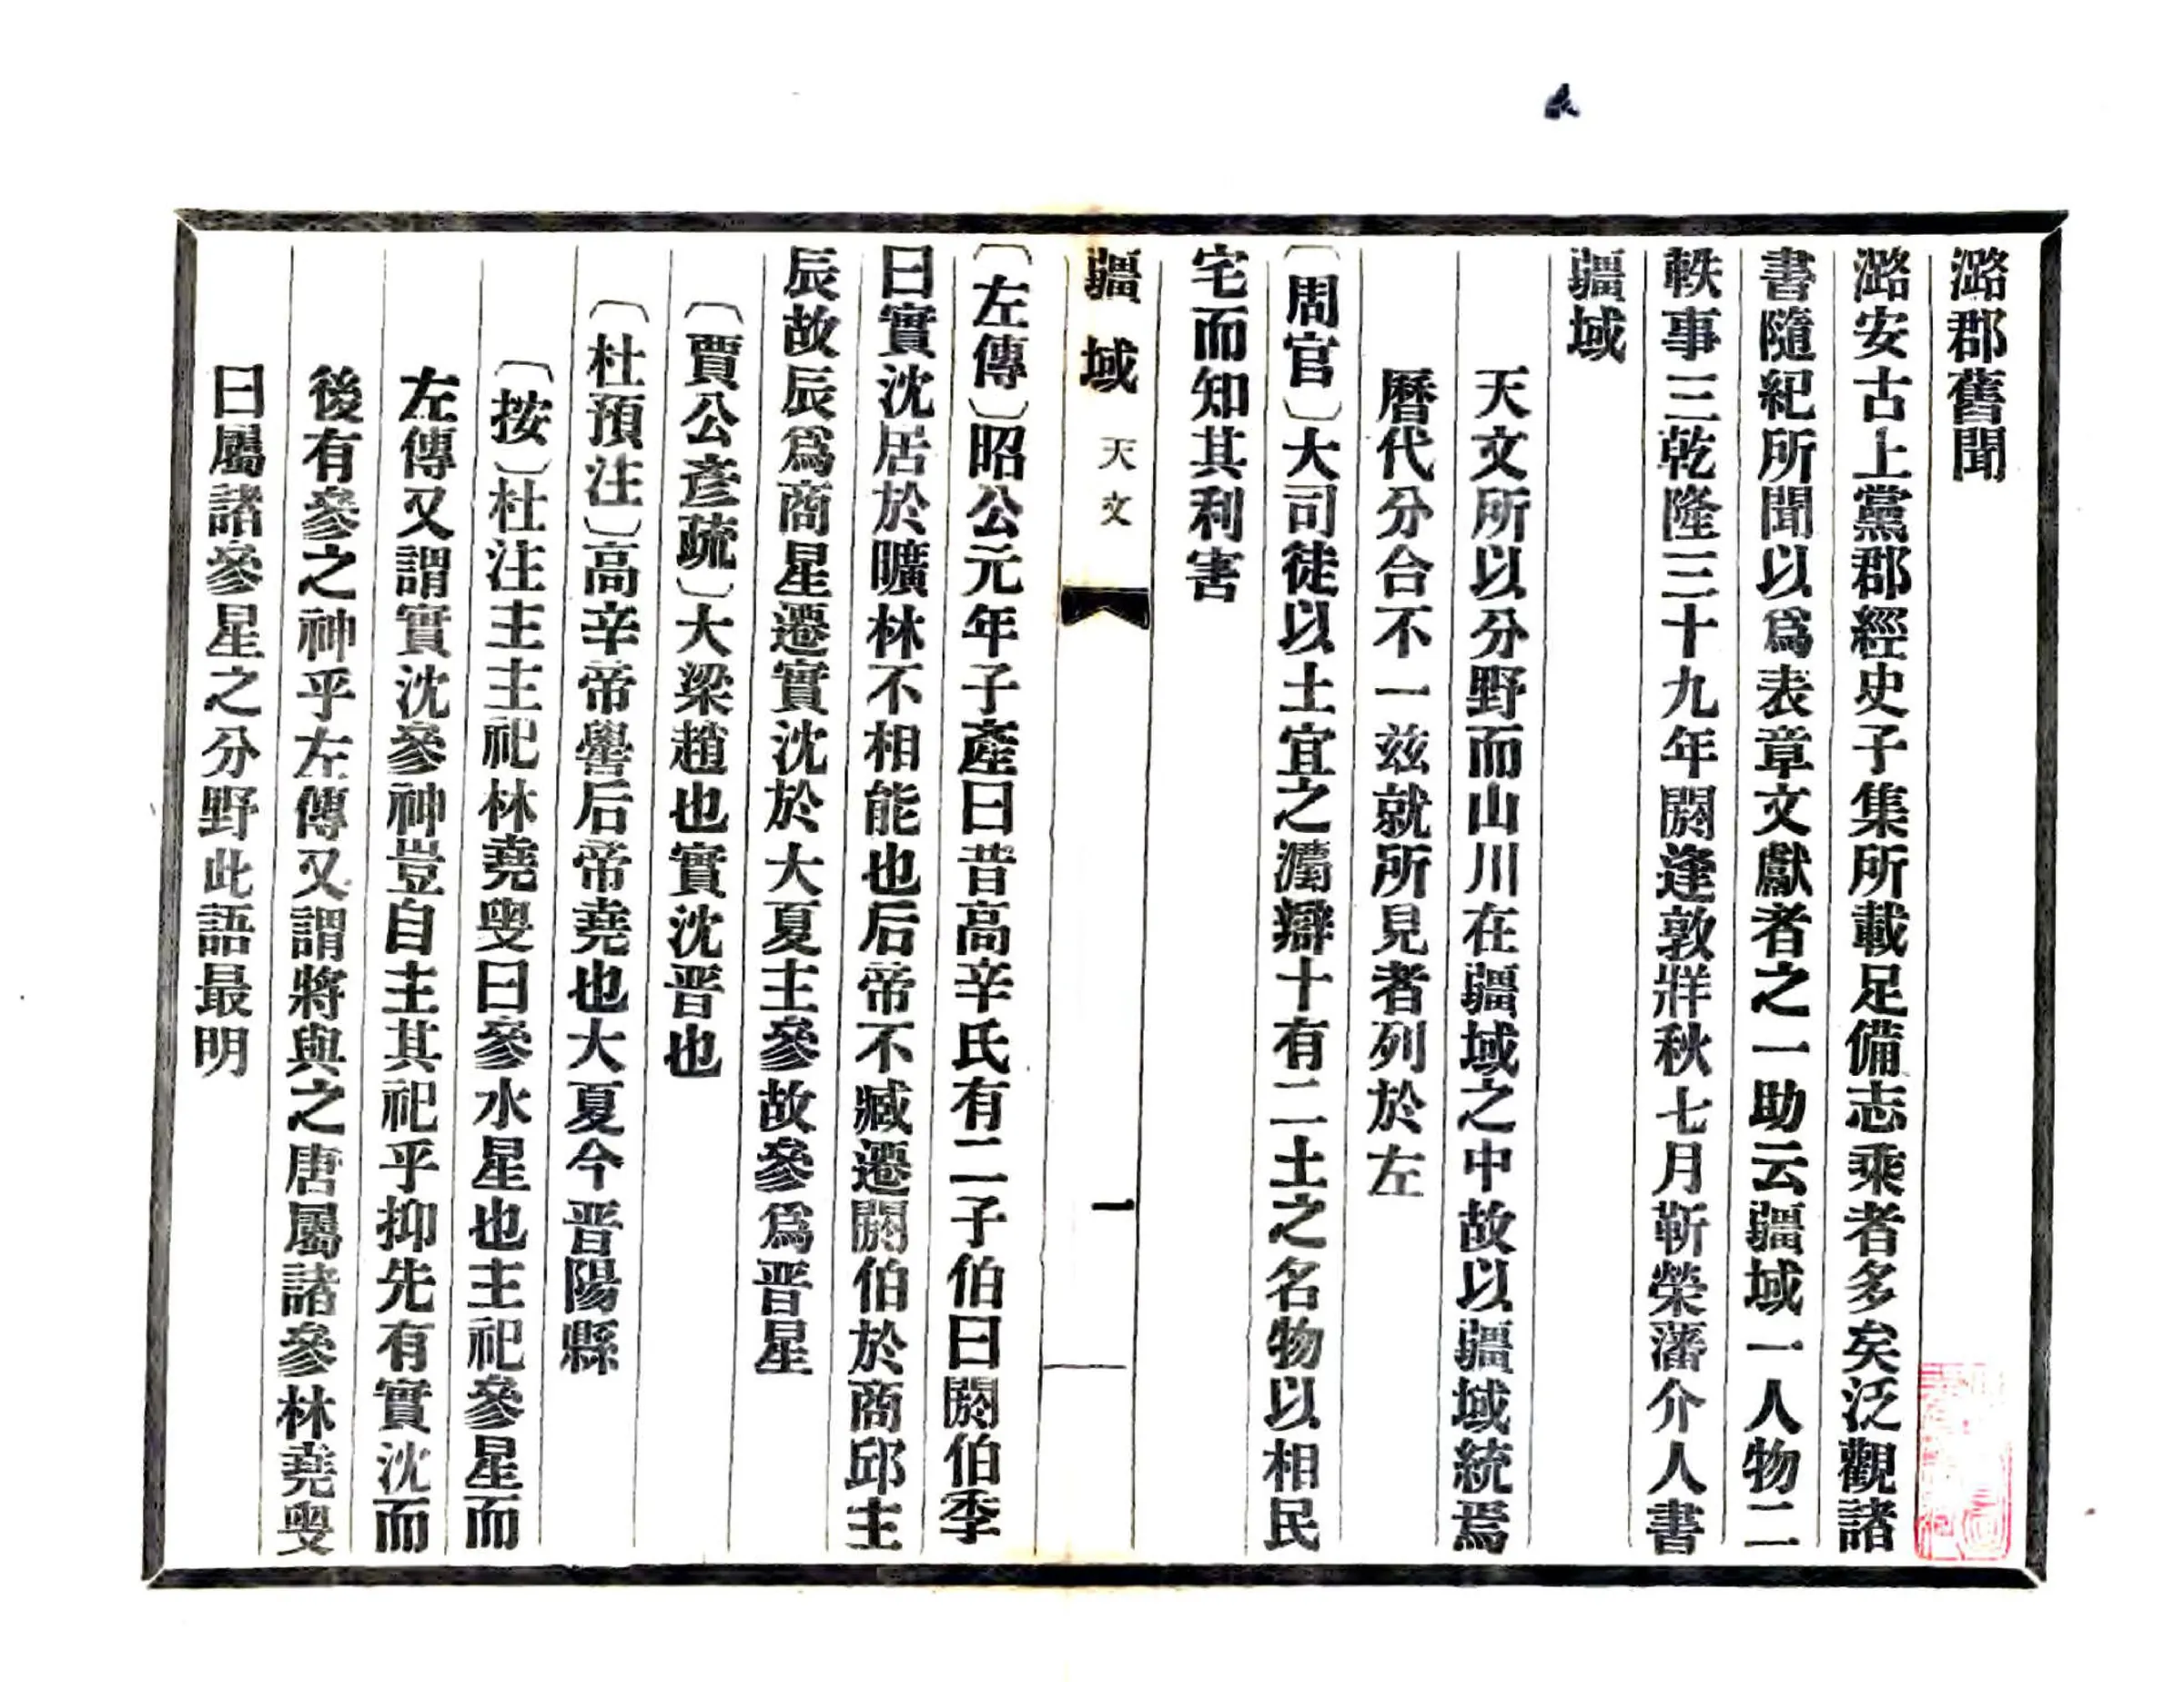 潞郡舊聞
潞安古上黨郡經史子集所載足備志乘者多矣泛觀諸
書隨紀所聞以爲表章文獻者之一助云疆域一人物二
軼事三乾隆三十九年閼逢敦牂秋七月靳榮藩介人書
疆域
天文所以分野而山川在疆域之中故以疆域統焉
曆代分合不一茲就所見者列於左
〔周官〕大司徒以土宜之灋辯十有二土之名物以相民
宅而知其利害
疆域 天文 一
〔左傳〕昭公元年子產曰昔高辛氏有二子伯曰閼伯季
曰實沈居於曠林不相能也后帝不臧遷閼伯於商邱主
辰故辰爲商星遷實沈於大夏主參故參爲晋星
〔賈公彥疏〕大梁趙也實沈晋也
〔杜預注〕高辛帝嚳后帝堯也大夏今晋陽縣
〔按〕杜注主主祀林堯叟曰參水星也主祀參星而
左傳又謂實沈參神豈自主其祀乎抑先有實沈而
後有參之神乎左傳又謂將與之唐屬諸參林堯叟
曰屬諸參星之分野此語最明